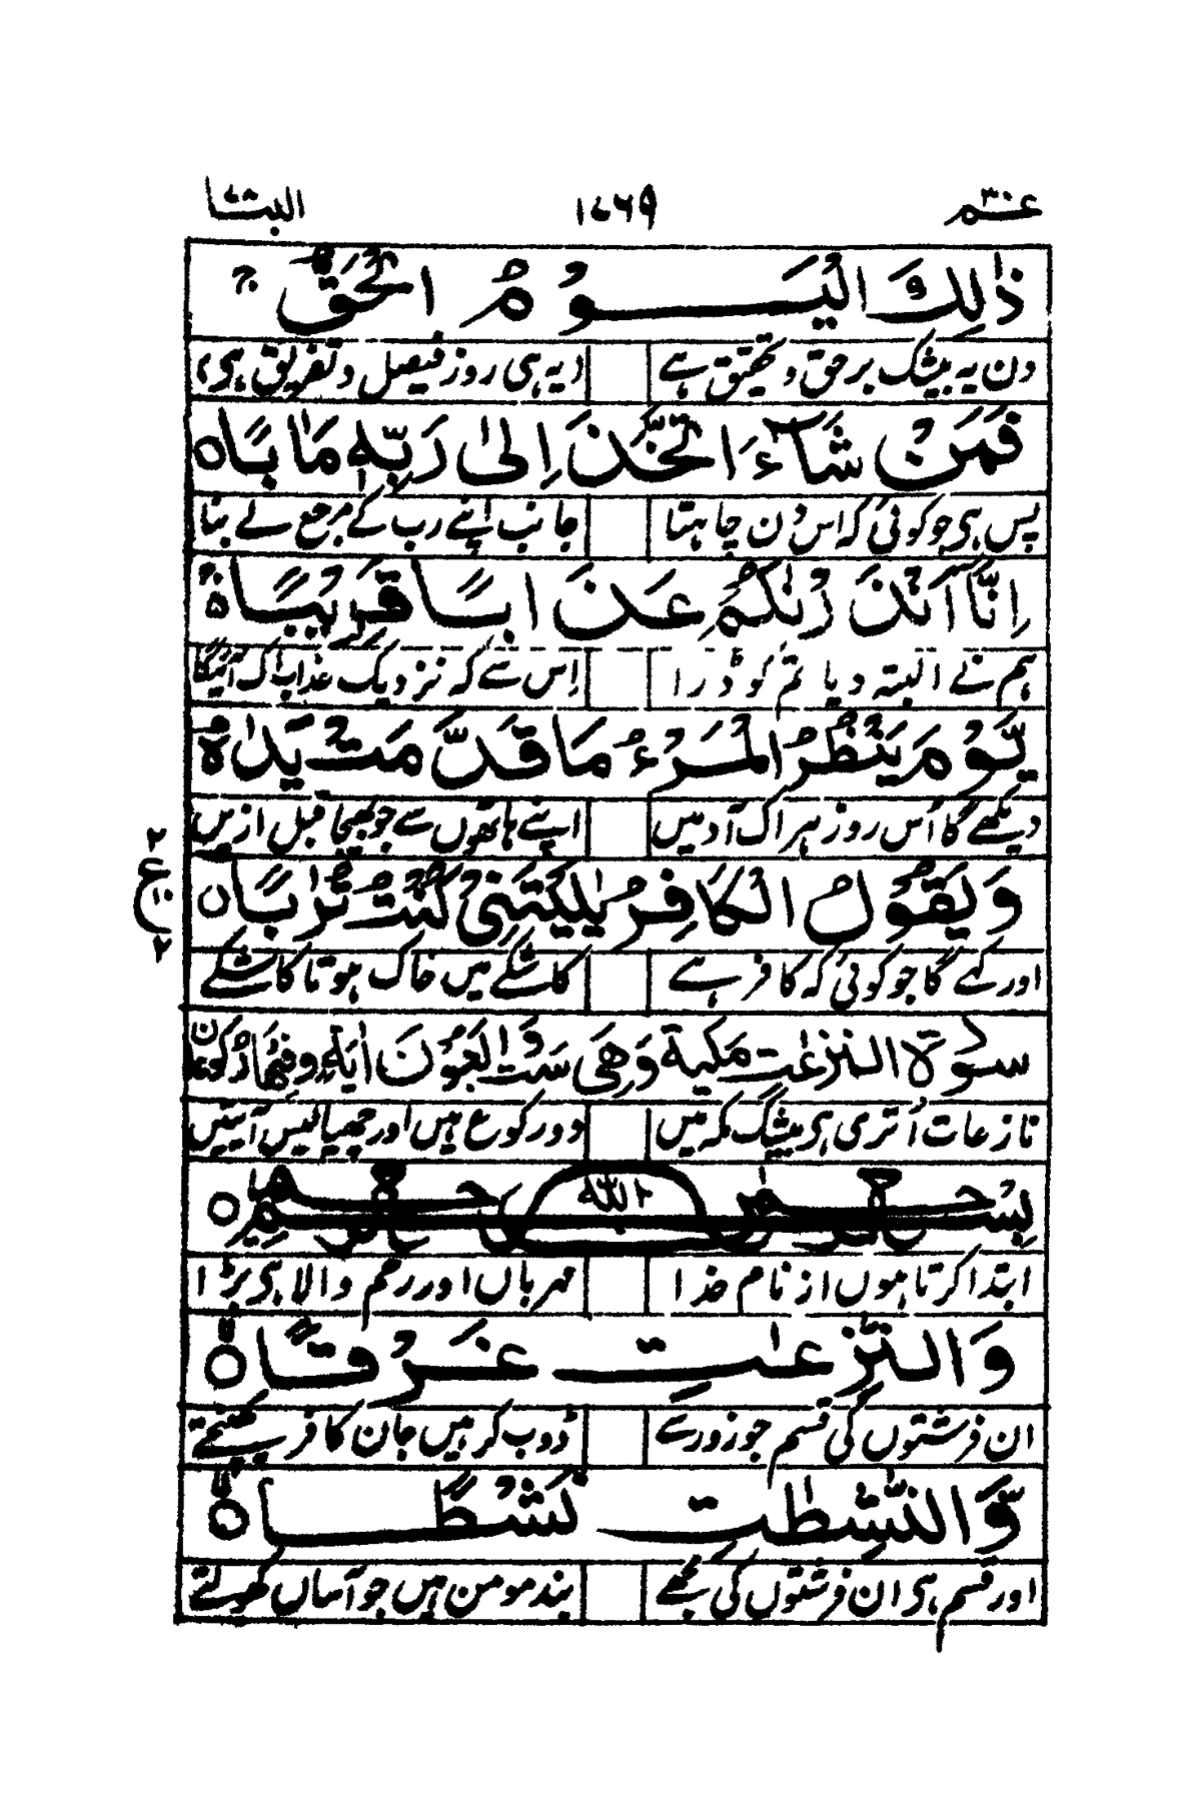 عم ۳۰ ۱۷۶۹ النبا ۷۸
ذٰلِكَ الْيَوْمُ الْحَقُّ ج
دن یہ بیشک برحق و تحقیق ہے دیہ ہی روز فیصل و تفریق ہی
فَمَنْ شَآءَ اتَّخَذَ اِلٰى رَبِّهٖ مَاٰبًا ○
پس ہی جو کوئی کہ اس دن چاہتا جانب اپنے رب کے مرجع لے بنا
اِنَّآ اَنْذَرْنٰكُمْ عَذَابًا قَرِيْبًا
ہم نے البتہ دیا تم کو ڈرا اِس سے کہ نزدیک عذاب اک آئیگا
يَّوْمَ يَنْظُرُ الْمَرْءُ مَا قَدَّمَتْ يَدٰهُ
دیکھے گا اُس روز ہر اک آدمیں اپنے ہاتھوں سے جو بھیجا قبل ازیں
وَيَقُوْلُ الْكَافِرُ يٰلَيْتَنِيْ كُنْتُ تُرٰبًا ○
۲ ع ۲
اور کہے گا جو کوئی کہ کافر ہے کاشکے میں خاک ہوتا کاشکے
سورة النزعٰت مكية وَهِيَ سِتٌّ وَّاَرْبَعُوْنَ اٰيَةً وفيها ركوعان
نازعات اُتری ہی بیشک مکہ میں دو رکوع ہیں اور چھیالیس آیتیں
بِسْمِ اللّٰهِ الرَّحْمٰنِ الرَّحِيْمِ ○
ابتدا کرتا ہوں از نام خدا مہرباں اور رحم والا ہی بڑا
وَالنّٰزِعٰتِ غَرْقًا ○
ان فرشتوں کی قسم جو زور سے ڈوب کر ہیں جان کافر کھینچتے
وَّالنّٰشِطٰتِ نَشْطًا ○
اور قسم ہی ان فرشتوں کی مجھے بند مومن ہیں جو آساں کھولتے